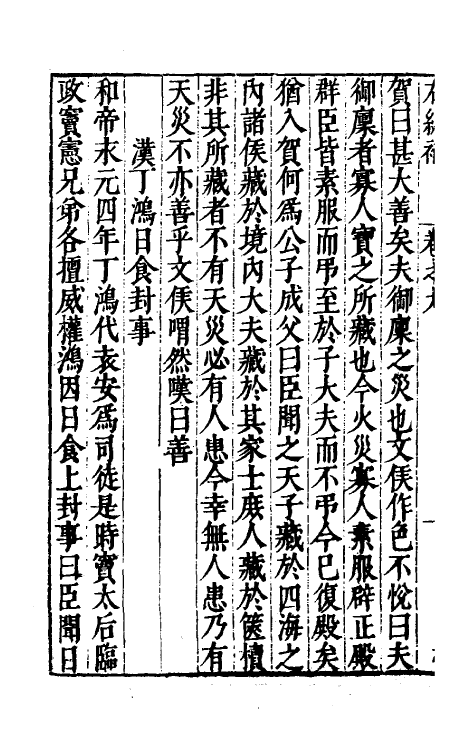 賀曰甚大善矣夫御廩之災也文侯作色不悅曰夫
御廩者寡人寶之所藏也今火災寡人素服辟正殿
群臣皆素服而弔至於子大夫而不弔今已復殿矣
猶入賀何爲公子成父曰臣聞之天子藏於四海之
內諸侯藏於境內大夫藏於其家士庶人藏於篋櫝
非其所藏者不有天災必有人患今幸無人患乃有
天災不亦善乎文侯喟然嘆曰善
漢丁鴻日食封事
和帝永元四年丁鴻代袁安爲司徒是時竇太后臨
政竇憲兄弟各擅威權鴻因日食上封事曰臣聞日